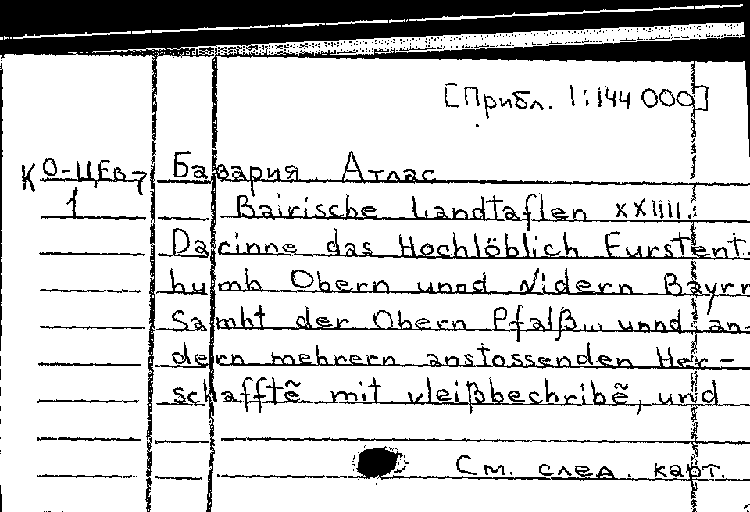 [Прибл. 1:144 000]
К О-ЦЕв-7 Бавария. Атлас
1 Bairische Landtaflen XXIIII.
Darinne das Hochlöblich Furstent-
humb Obern unnd Nidern Bayrn
Sambt der Obern Pfalß... unnd an-
dern mehrern anstossenden Her-
schafftẽ mit vleißbechribẽ, und
См. след. карт.